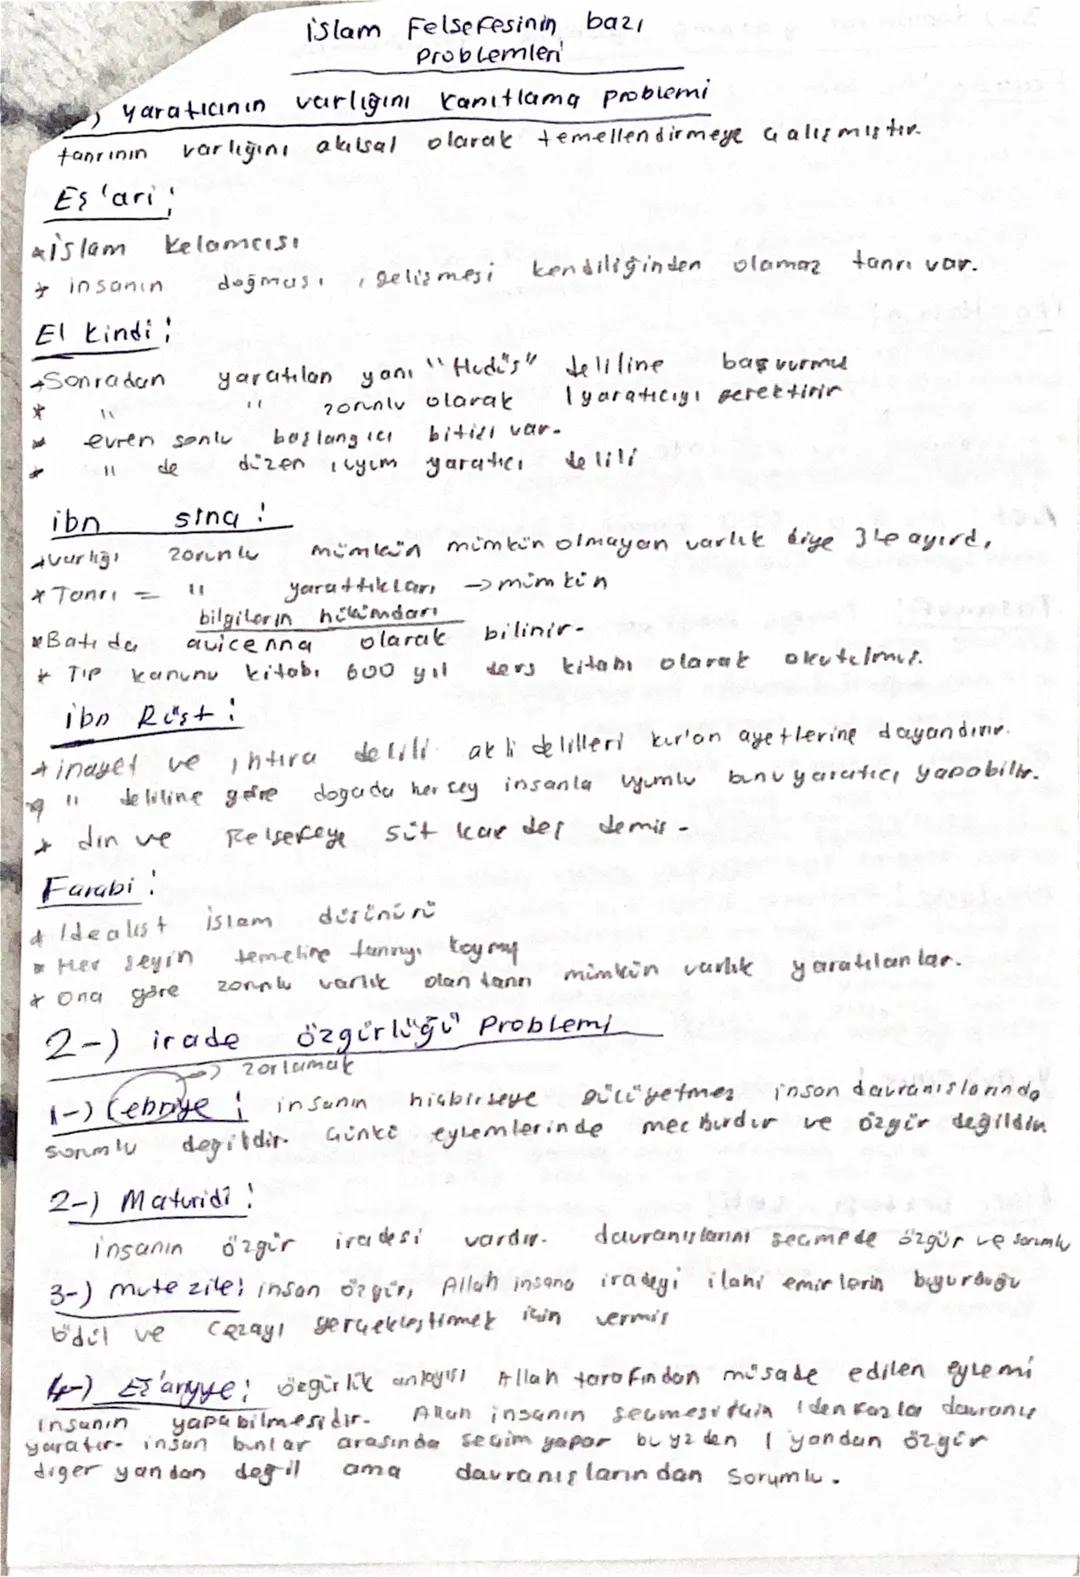 islam Felsefesinin bazı
Problemleri
) yaratıcının varlığını kanıtlama problemi
tanrının varlığını akılsal olarak temellendirmeye çalışmıştır.
Eş'ari:
*islam kelamcısı
* insanın doğması, gelişmesi kendiliğinden olamaz tanrı var.
El Kindi:
*Sonradan yaratılan yani "Hudûs" deliline başvurmuş
* " " zorunlu olarak 1 yaratıcıyı gerektirir
* evren sonlu başlangıcı bitişi var.
* " de düzen, uyum yaratıcı delili
ibn sina:
*varlığı zorunlu mümkün mümkün olmayan varlık diye 3'e ayırdı,
* Tanrı = " yarattıkları → mümkün
bilgilerin hükümdarı
*Batı da avicenna olarak bilinir.
* Tıp kanunu kitabı 600 yıl ders kitabı olarak okutulmuş.
ibn Rüşt:
* inayet ve ihtira delili akli delilleri kur'an ayetlerine dayandırır.
* " deliline göre doğada her şey insanla uyumlu bunu yaratıcı yapabilir.
* din ve felsefeye süt kardeş demiş.
Farabi:
* Idealist islam düşünürü
* Her şeyin temeline tanrıyı koymuş
* Ona göre zorunlu varlık olan tanrı mümkün varlık yaratılanlar.
2-) irade özgürlüğü Problemi
→ zorlamak
1-) Cebriye: insanın hiçbirşeye gücü yetmez insan davranışlarında
sorumlu değildir. Çünkü eylemlerinde mecburdur ve özgür değildir
2-) Maturidî:
insanın özgür iradesi vardır. davranışlarını seçmede özgür ve sorumlu
3-) mutezile: insan özgür, Allah insana iradeyi ilahi emirlerin buyurduğu
ödül ve cezayı gerçekleştirmek için vermiş
4-) Eş'ariyye: özgürlük anlayışı Allah tarafından müsade edilen eylemi
insanın yapabilmesidir. Allah insanın seçmesi için 1 den fazla davranış
yaratır. insan bunlar arasında seçim yapar bu yüzden 1 yandan özgür
diğer yandan değil ama davranışlarından sorumlu.